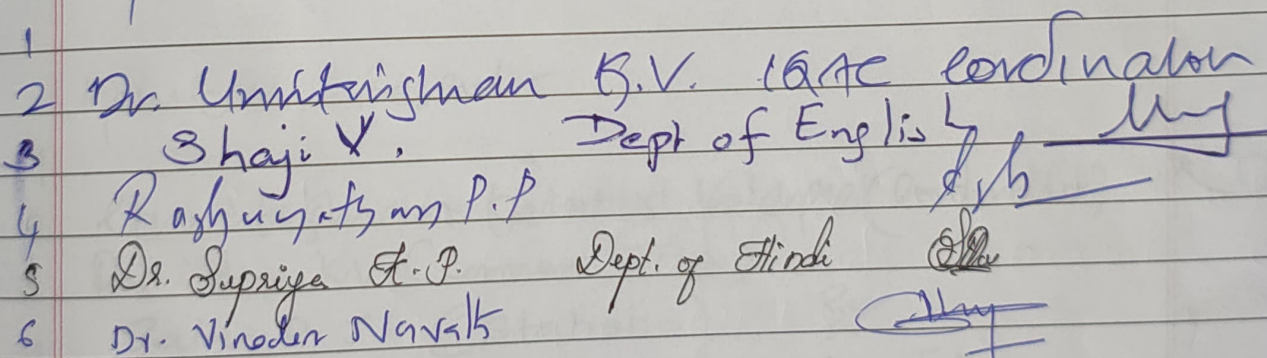 1
2 Dr. Unnikrishnan K.V. IQAC Cordinator
3 Shaji V. Dept of English
4 Raghunathan P.P
5 Dr. Supriya A.P. Dept. of Hindi
6 Dr. Vinoden Navath